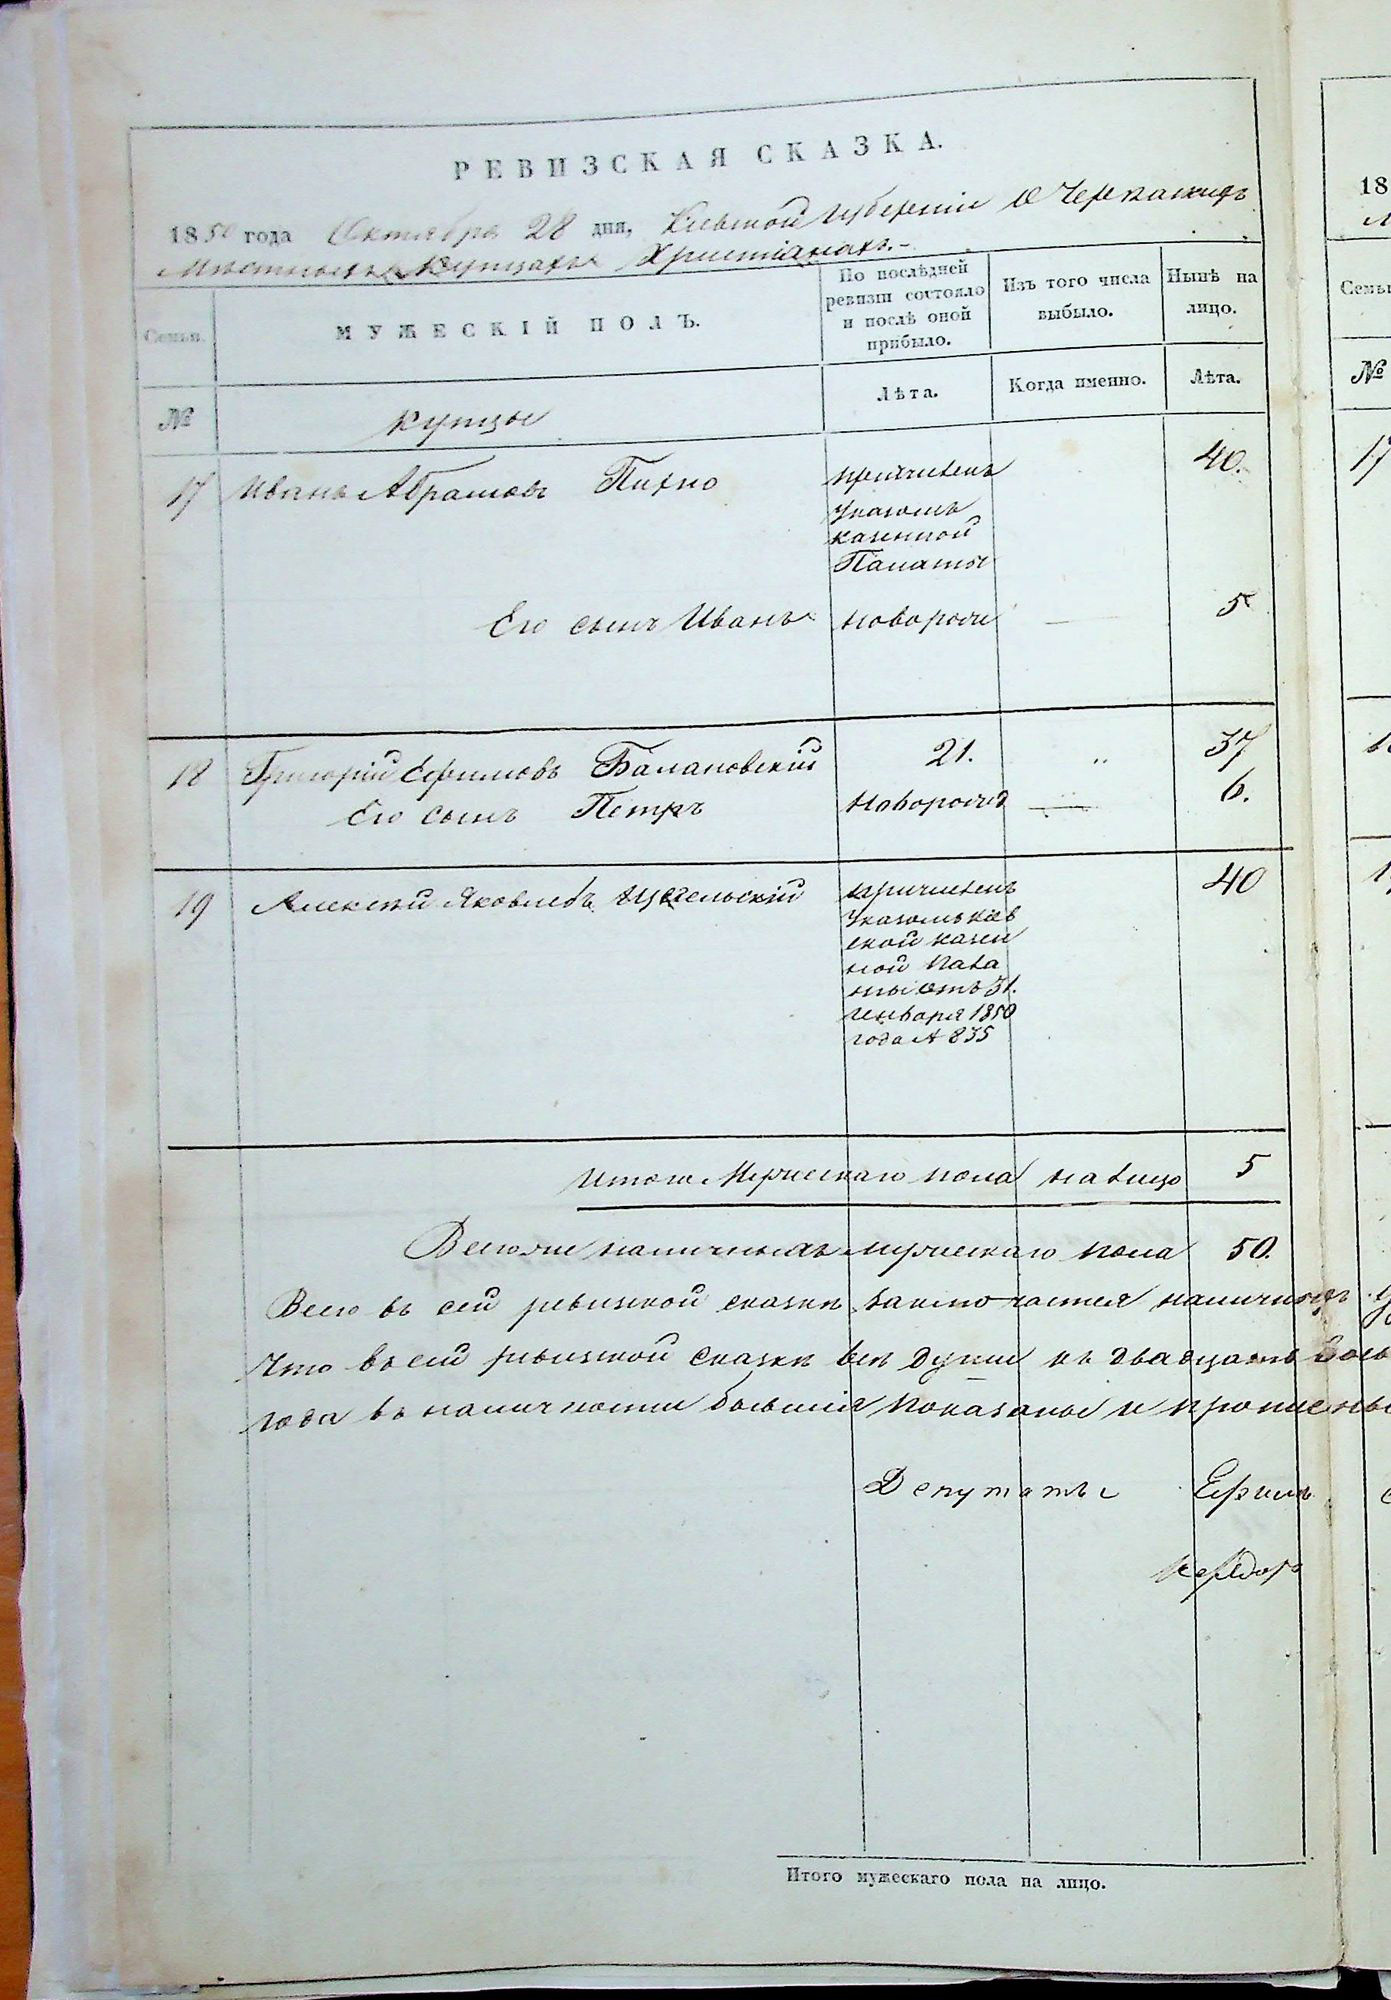 РЕВИЗСКАЯ СКАЗКА.
1850 года Октября 28 дня, Кіевской Губерніи О Черкаскихъ
Мѣстныхъ Купцахъ Христіанахъ.-
Семьи.
МУЖЕСКІЙ ПОЛЪ.
По послѣдней ревизіи состояло и послѣ оной прибыло.
Изъ того числа выбыло.
Нынѣ на лицо.
№
Купцы
Лѣта.
Когда именно.
Лѣта.
17 Иванъ Абрамовъ Пихно причисленъ 40.
Указомъ
казенной
Палаты
Его сынъ Иванъ новорожд 5
18 Григорій Ефимовъ Балановскій 21. „ 37
Его сынъ Петръ новорожд 6.
19 Алексѣй Яковлевъ причисленъ 40
Указомъ Кіев
ской казен
ной Пала
ты отъ 31.
Генваря 1850
года № 835
Итого Мужескаго пола на лицо 5
Всего же наличныхъ мужескаго пола 50.
Всего въ сей ревизской сказкѣ заключается наличныхъ
Что въ сей ревизской сказкѣ всѣ души къ двадцать
года въ наличности бывшія показаны и
Депутаты Ефимъ
Итого мужескаго пола на лицо.
18
Семьи
№
17